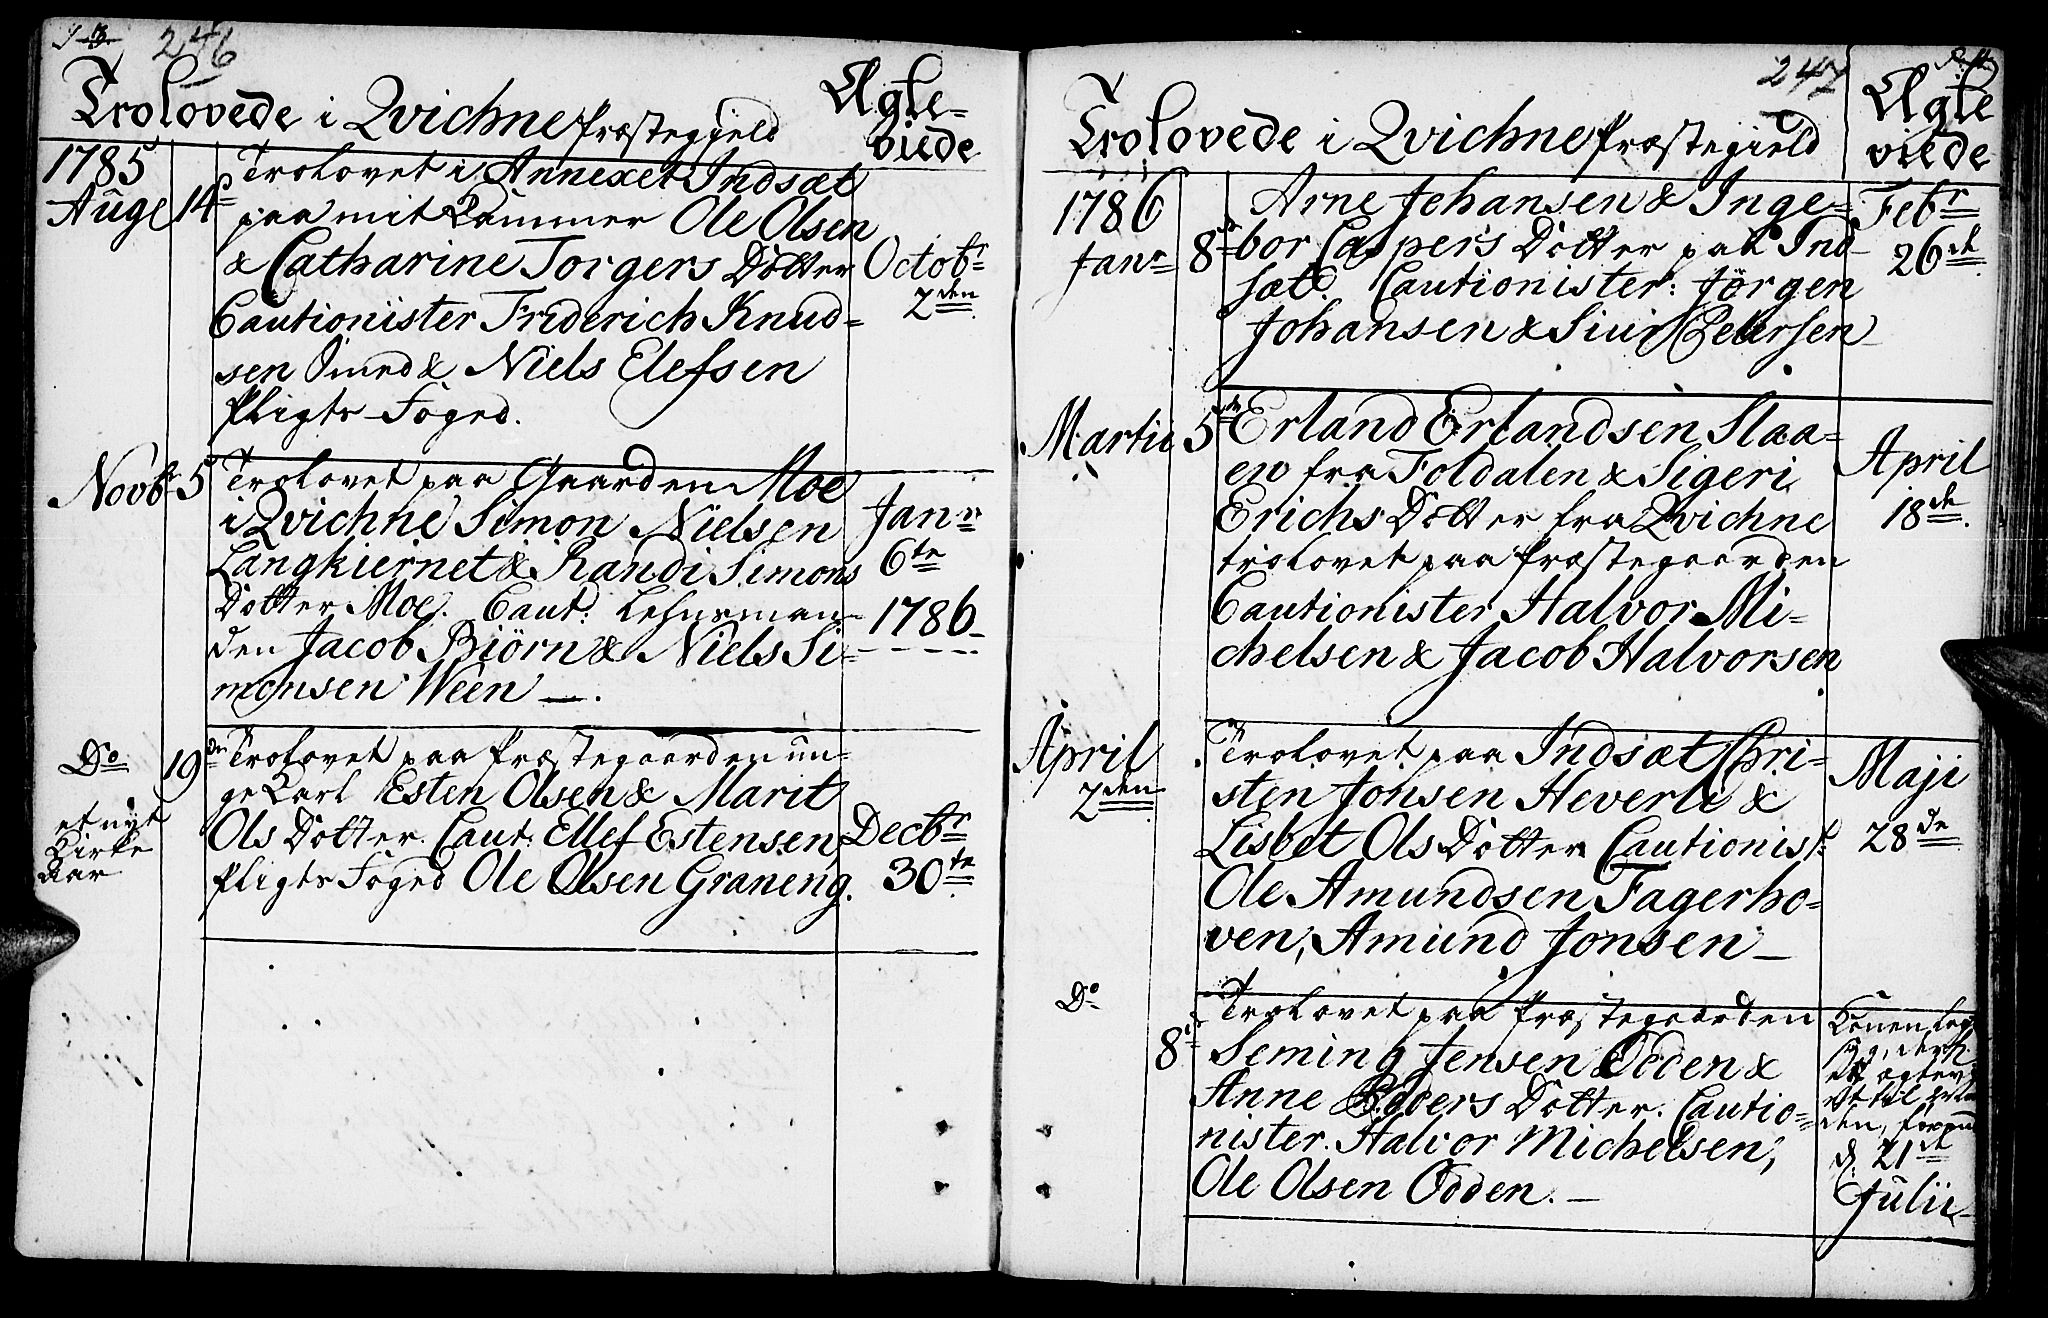 246
Trolovede i Qvichne Præstegield
Ægte-
viede
1785
Auge 14de
Trolovet i Annexet Indsæt
paa mit Kammer Ole Olsen
& Catharine Torgers Dotter
Cautionister Friderich Knud-
sen Smed & Niels Elefsen
Pligts-Foged.
Octobr
2den
Novbr 5
Trolovet paa Gaarden Moe
i Qvichne Simon Nielsen
Langkiernet & Randi Simons
Dotter Moe. Caut: Lehnsman-
den Jacob Biørn & Niels Si-
monsen Ween —.
Janr
6te
1786
Do 19den
Trolovet paa Præstegaarden un-
ge Karl Esten Olsen & Marit
Ols Dotter. Caut: Ellef Estensen
Pligts Foged Ole Olsen Graneng.
Decbr
30te
et nyt
Kirke
Aar
247
Trolovede i Qvichne Præstegield
Ægte
viede
1786
Janr 8de
Arne Johansen & Inge-
bor Caspers Dotter paa Ind-
sæt. Cautionister: Jörgen
Johansen & Siur Petersen
Febr
26de
Martii 5te
Erland Erlandsen Slaa-
en fra Foldalen & Sigeri
Erichs Dotter fra Qvichne
trolovet paa Præstegaarden
Cautionister Halvor Mi-
chelsen & Jacob Halvorsen
April
18de.
April
2den
Trolovet paa Indsæt Chri-
sten Jonsen Heverli &
Lisbet Ols Dotter Cautionist:
Ole Amundsen Fagerho-
ven, Amund Jonsen —
Maji
28de
Do
8de
Trolovet paa Præstegaarden
Seming Jensen Odden &
Anne Dotter. Cautio-
nister. Halvor Michelsen,
Ole Olsen Odden. —
Konen
den,
d. 21de
Julii